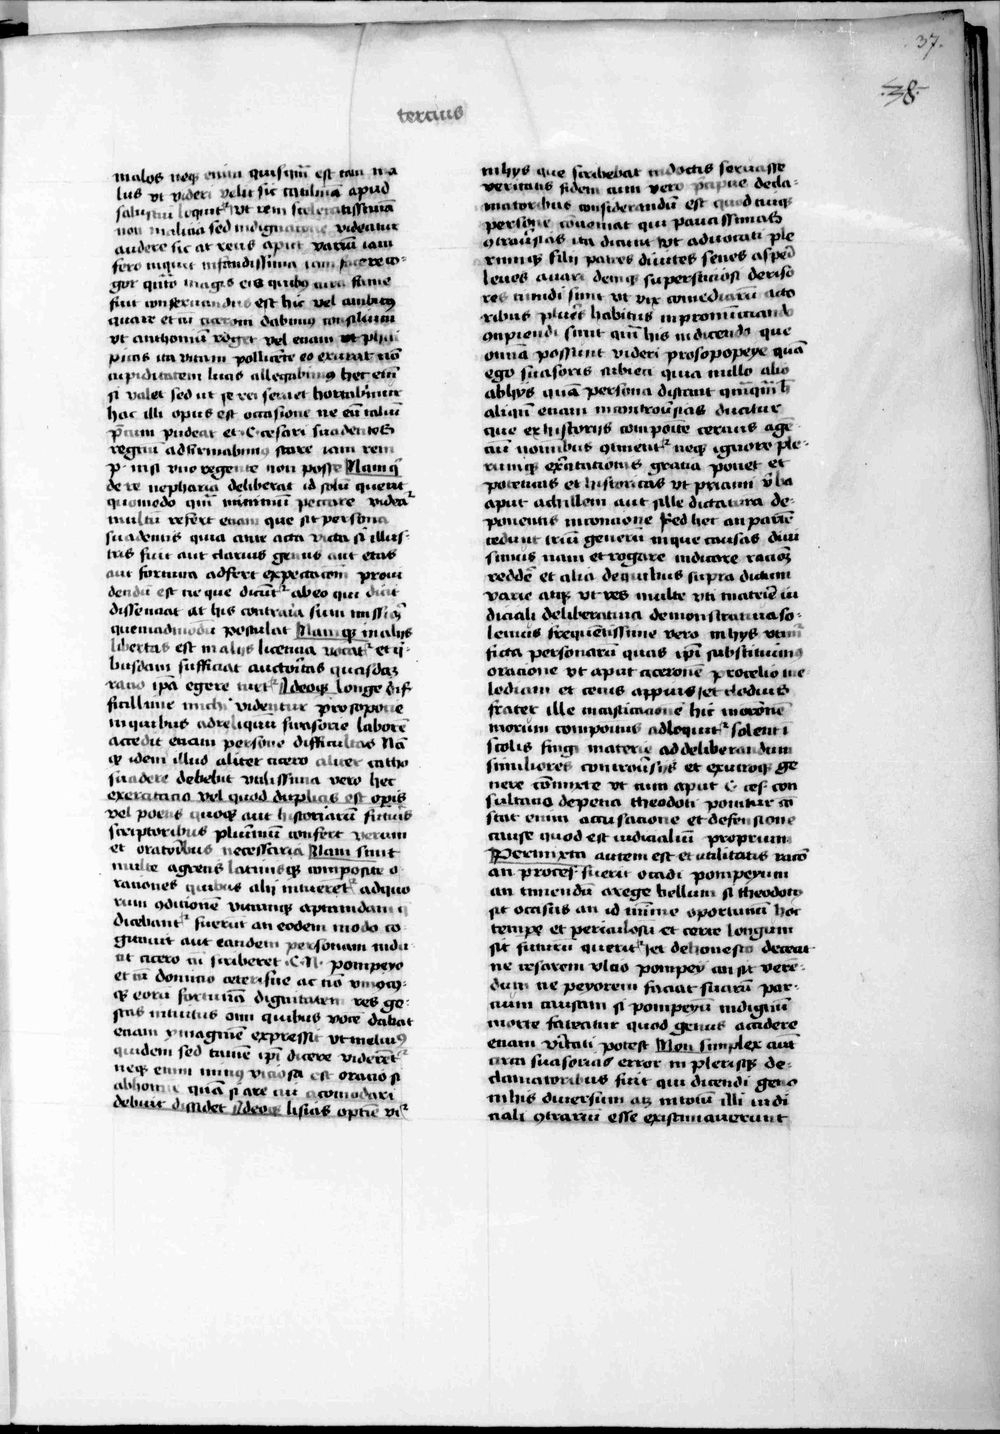 37.
38.
tercius
malos neqʒ enim quisquā est tam ma
lus vt videri velit sic catilinā apud
salustiū loquitʳ vt rem sceleratissimā
non malicia sed indignatione videatur
audere sic atreus aput variū iam
fero inquit infandissima iam facere co-
gor quāto magis eis quibꝰ cura fame
fuit conseruandus est hic vel ambitꝰ
quare et cū ciceroni dabimus consilium
vt anthoniū roget vel etiam vt phili
picas ita vitam pollicēte eo exurat nō
cupiditatem lucis allegabimꝰ hec enī
si valet sed ut se rei seruet hortabimur
hac illi opus est occasione ne eū taliū
p̄cum pudeat et .C. cesari suadentes
regnū adfirmabimꝰ stare iam rem
p. nisi vno regente non posse Nam qͥ
de re nepharia deliberat id solū querit
quomodo qm̄ minimū peccare videatʳ
multū refert etiam que sit persona
suadentis quia ante acta vita si illus-
tris fuit aut clarius genus aut etas
aut fortuna adfert expectacōm proui
dendū est ne que dicūtʳ ab eo qui dicit
dissenciat at his contraria sum̄issioʒ
quemadmodū postulat Nam qʒ in alijs
libertas est in alijs licencia vocatʳ et q̄-
busdam sufficiat auctoritas quosdaʒ
racio ip̄a egere turtʳ Ideoqʒ longe dif
ficillime michi videntur prosopopeie
in quibus ad reliquū suasorie laborē
accedit etiam persone difficultas Nā
qʒ idem illud aliter cicero aliter catho
suadere debebit vtilissima vero hec
exercitacio vel quod duplicis est operis
vel poetis quoqʒ aut historiarū futuris
scriptoribus plurimū confert verum
et oratoribus necessaria Nam sunt
multe a grecis latinisqʒ composite o-
rationes quibus alij vtuerētʳ ad quo
rum cōdicionem vitamqʒ aptanda q̄
dicebantʳ fuerūt an eodem modo co-
gitauit aut eandem personam indu
it cicero cū scriberet .C.N. pompeyo
et cū domicio ceterisue ac nō vniuscuiꝰ
qʒ eorū fortunā dignitatem res ge-
stas intuitus omī quibus vocē dabat
etiam ymaginē expressit vt meliuꝰ
quidem sed tamē ip̄i dicere viderētʳ
neqʒ enim minꝰ viciosa est oracio si
ab homine quā si a re cui acomodari
debuit dissidet Ideoqʒ lisias optīe viʳ
in hys que scribebat indoctis seruasse
veritatis fidem enim vero p̄cipue decla-
matoribus considerandū est quod cuiqʒ
persone cōueniat qui paucissimas
cōtrou͛sias ita dicūt vt aduocati ple
rumqʒ filij patres diuites senes asperi
leues auari deniqʒ supersticiosi deriso
res timidi sunt vt vix comediarū acto
ribus plures habitus in pronunciando
cōcipiendi sint quā his in dicendo que
omīa possunt videri prosopopeye quā
ego suasoris subieci quia nullo alio
ab hijs quā persona distant quāquā h̄
aliqn̄ etiam in controu͛sias ducitur
que ex historijs composite cercius agē-
tiū nominibus cōtinentʳ neqʒ ignoro ple-
rumqʒ ex͛citationis gratia ponet et
poeticas et historicas vt priami v͛ba
aput achillem aut sille dictatura de-
ponentis in concione Sed hec an partē
cedunt triū generū in que causas diui
simus nam et rogare indicare racōʒ
reddē et alia de quibus supra dictum
varie atqʒ vt res multe vti materiē iu
diciali deliberatiua demonstratiua so-
lemus frequētissime vero in hys vtimʳ
ficta personarū quas ip̄i substituimꝰ
oracione vt aput ciceronē pro celio me-
lodiam et cecus appius et clodius
frater ille in castigacionē hic in orōnē
morum compositus adloquitʳ solent ī
scolis fingi materie ad deliberandum
similiores controu͛siis et ex utroqʒ ge
nere cōmixte vt cum aput C. ces͛ con
sultatio de pena theodoti ponitur cō
stat enim accusatione et defensione
cause quod est iudicialiū proprium
Permixta autem est et vtilitatis racō
an pro ces͛ fuerit occidi pompeyum
an timendū a rege bellum si theodotꝰ
sit occisus an id minime oportunū hoc
tempe et periculosū et certe longum
sit futurū queritʳ et de honesto deceat
ne cesarem vltio pompey an sit veren-
dum ne peyorem faciat suarū par-
cium causam si pompeyū indignū
morte fateatur quod genus accidere
etiam v͛itati potest Non simplex aūt
circa suasorias error in plerisqʒ de-
clamatoribus fuit qui dicendi genꝰ
in his diuersum atqʒ in totum illi iudi
ciali cōtrariū esse existimauerunt